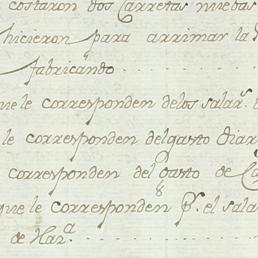 costaron dos Carretas nuebas
hicieron para arrimar la
fabricando
que le corresponden delos salar.s
le corresponden del gasto diar
corresponden del gasto de Ca
que le corresponden pr. el sala
de Har.a